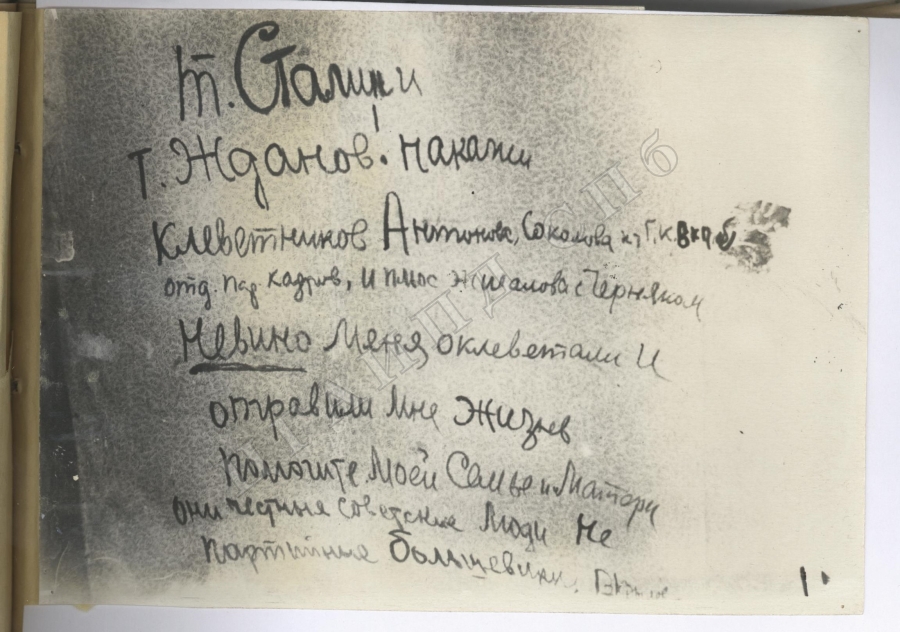 т. Сталин и
т. Жданов! накажи
клеветников Антонова, Соколова из Г.К. ВКП(б)
отд. пар кадров, и плюс Жигалова с Черняком
Невино меня оклеветали и
отравили мне жизнь
помогите моей семье и матери
они честные советские люди не
партийные большевики.
ЦГАИПД СПб